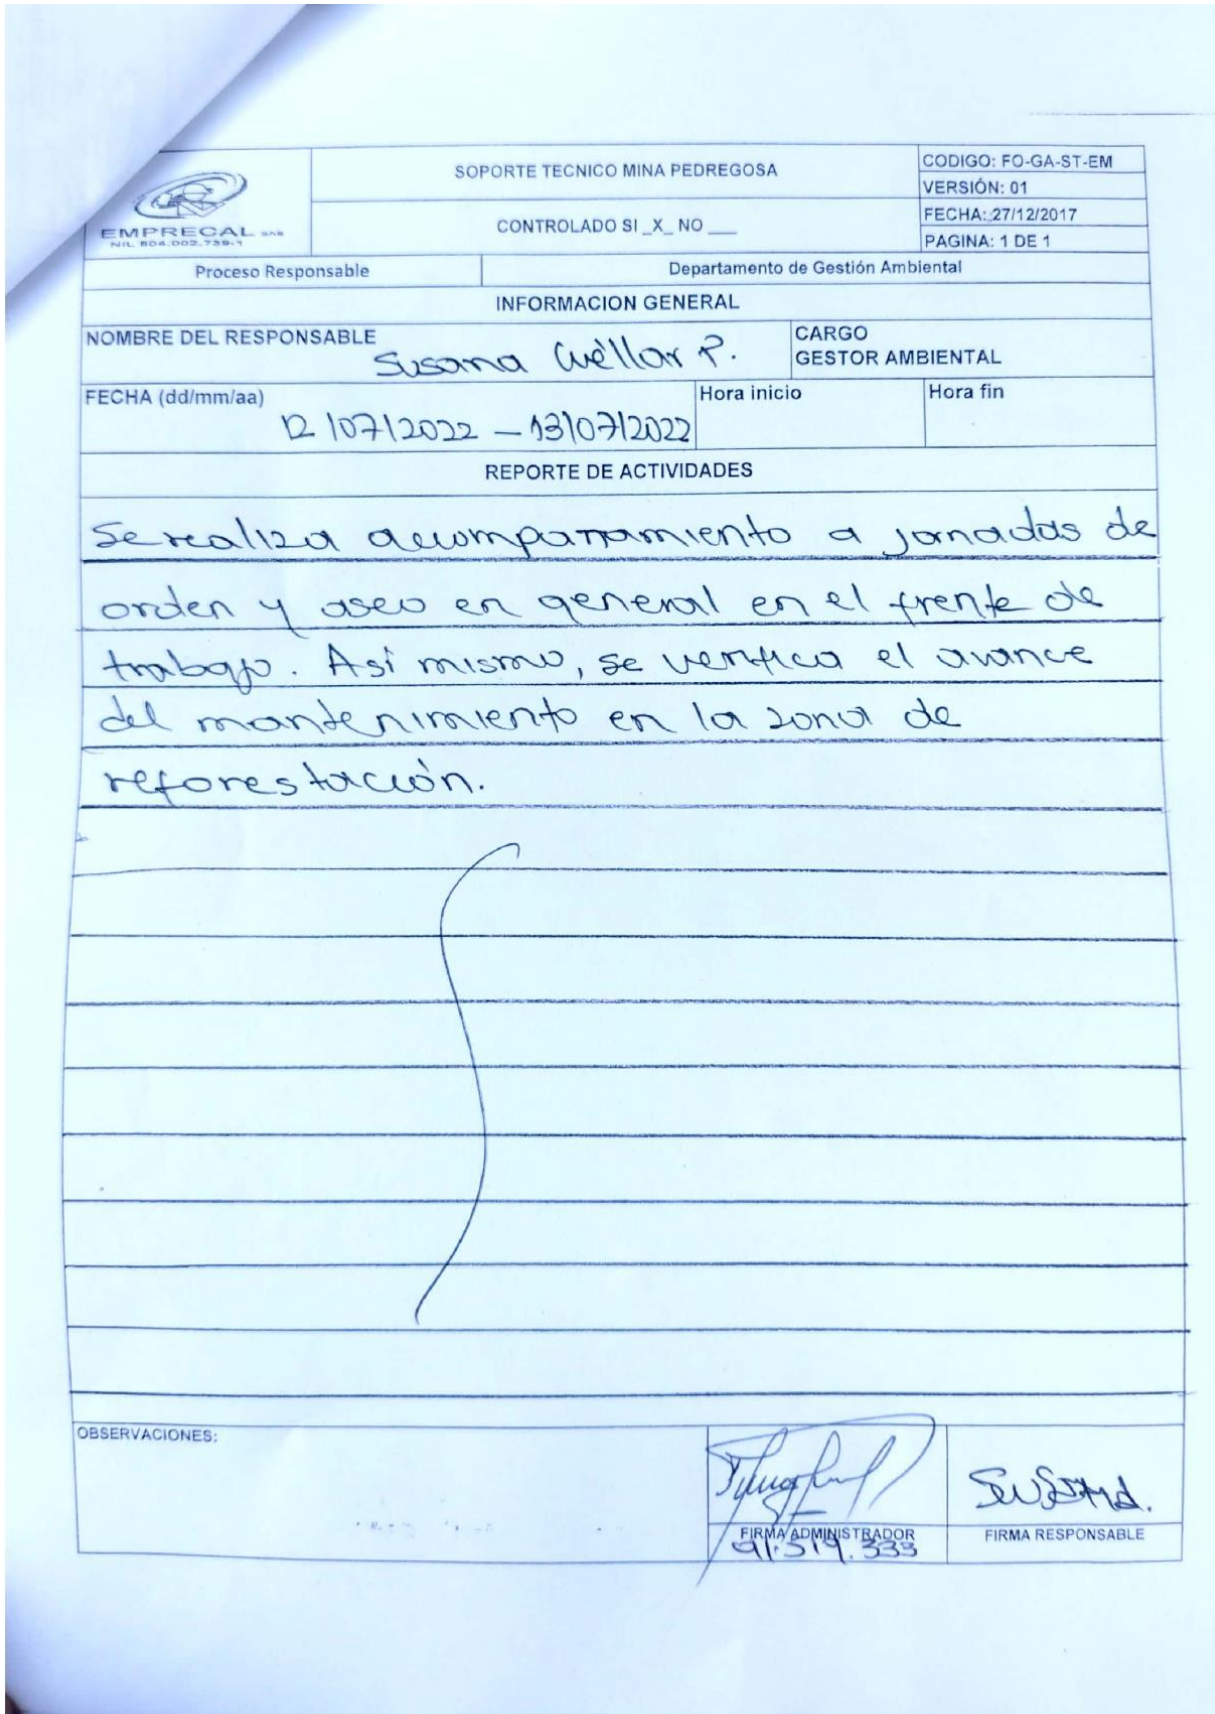 EMPRECAL SAS
NIL 804.002.739-1
SOPORTE TECNICO MINA PEDREGOSA
CONTROLADO SI _X_ NO ___
CODIGO: FO-GA-ST-EM
VERSIÓN: 01
FECHA: 27/12/2017
PAGINA: 1 DE 1
Proceso Responsable
Departamento de Gestión Ambiental
INFORMACION GENERAL
NOMBRE DEL RESPONSABLE
Susana Cuéllar P.
CARGO
GESTOR AMBIENTAL
FECHA (dd/mm/aa)
12/07/2022 – 13/07/2022
Hora inicio
Hora fin
REPORTE DE ACTIVIDADES
Se realiza acompañamiento a jornadas de
orden y aseo en general en el frente de
trabajo. Así mismo, se verifica el avance
del mantenimiento en la zona de
reforestación.
OBSERVACIONES:
FIRMA ADMINISTRADOR
91.519.333
Susana.
FIRMA RESPONSABLE